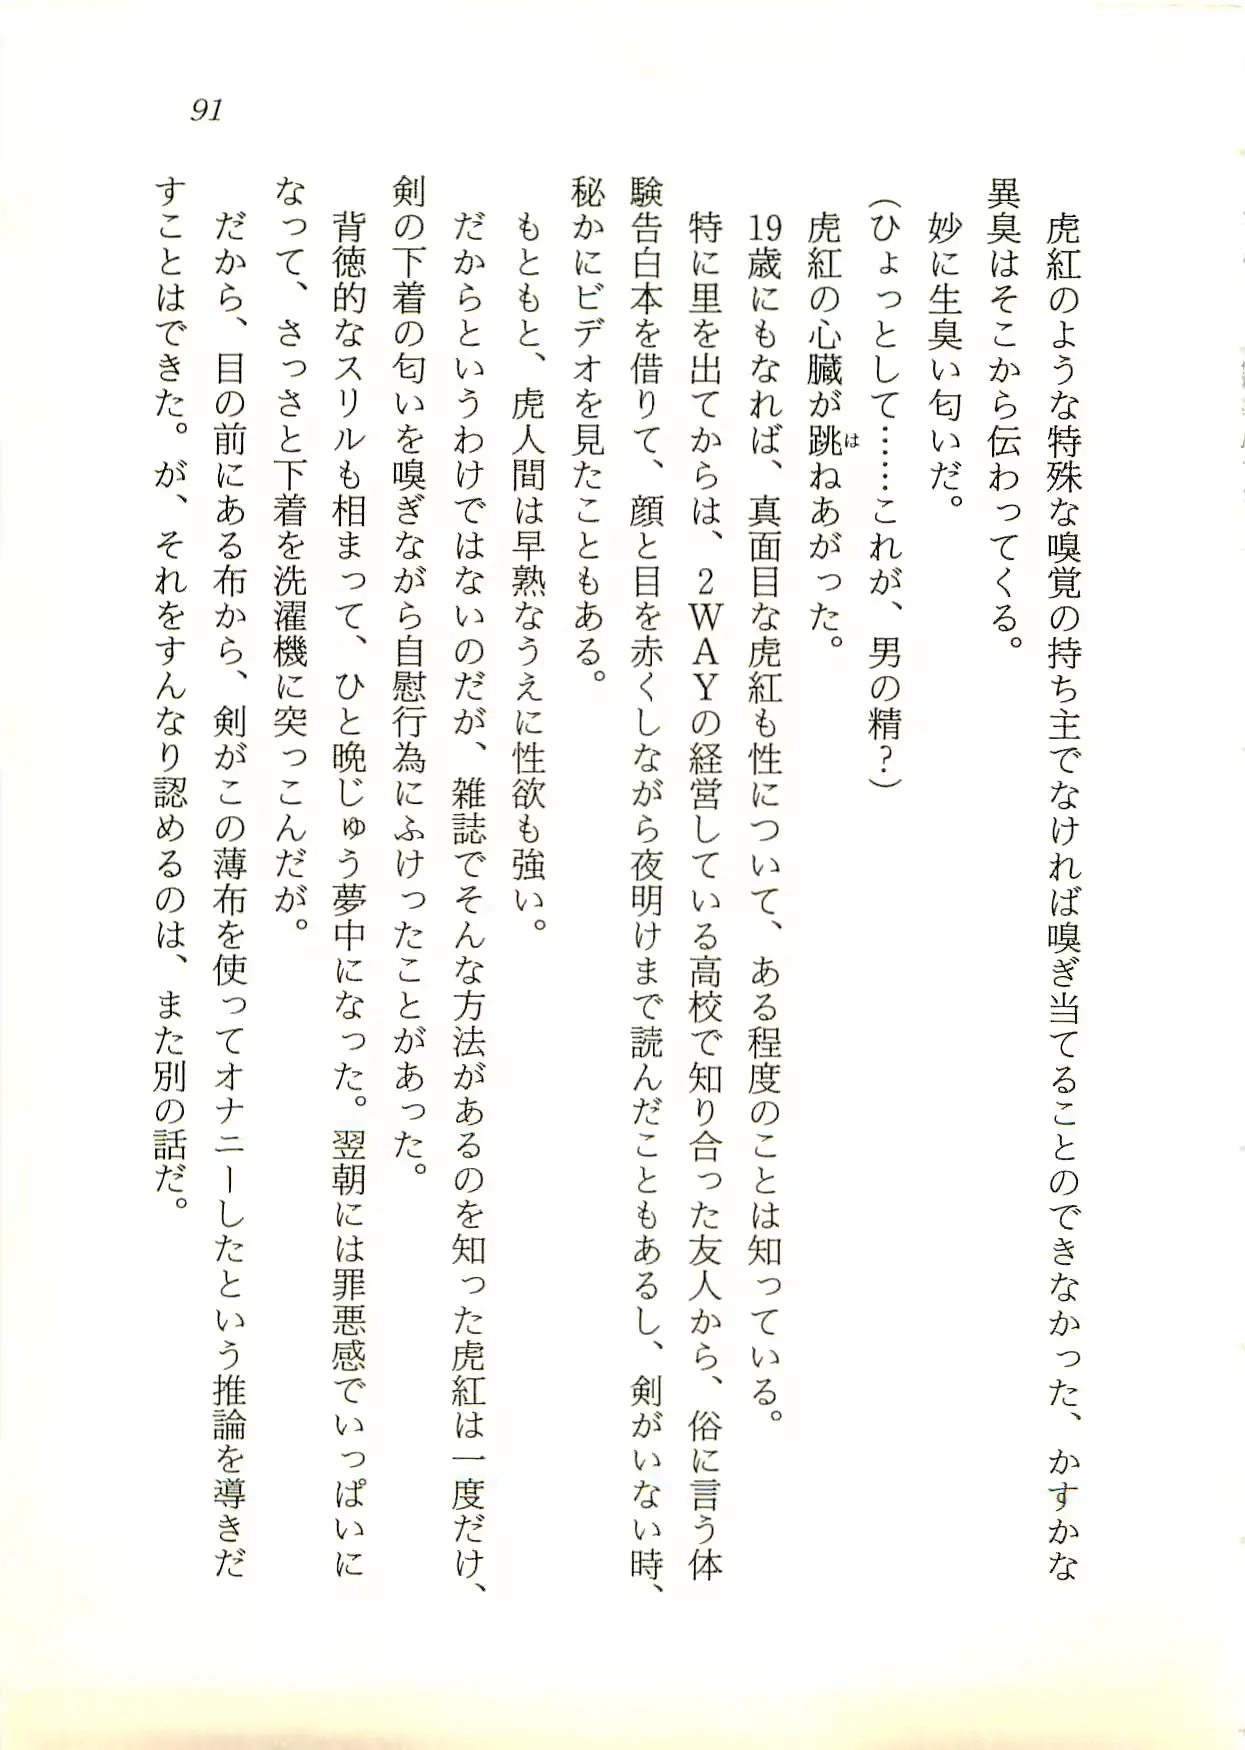 91
虎紅のような特殊な嗅覚の持ち主でなければ嗅ぎ当てることのできなかった、かすかな
異臭はそこから伝わってくる。
妙に生臭い匂いだ。
(ひょっとして……これが、男の精?)
虎紅の心臓が跳ねあがった。
は
19歳にもなれば、真面目な虎紅も性について、ある程度のことは知っている。
特に里を出てからは、2WAYの経営している高校で知り合った友人から、俗に言う体
験告白本を借りて、顔と目を赤くしながら夜明けまで読んだこともあるし、剣がいない時、
秘かにビデオを見たこともある。
もともと、虎人間は早熟なうえに性欲も強い。
だからというわけではないのだが、雑誌でそんな方法があるのを知った虎紅は一度だけ、
剣の下着の匂いを嗅ぎながら自慰行為にふけったことがあった。
背徳的なスリルも相まって、ひと晩じゅう夢中になった。翌朝には罪悪感でいっぱいに
なって、さっさと下着を洗濯機に突っこんだが。
だから、目の前にある布から、剣がこの薄布を使ってオナニーしたという推論を導きだ
すことはできた。が、それをすんなり認めるのは、また別の話だ。